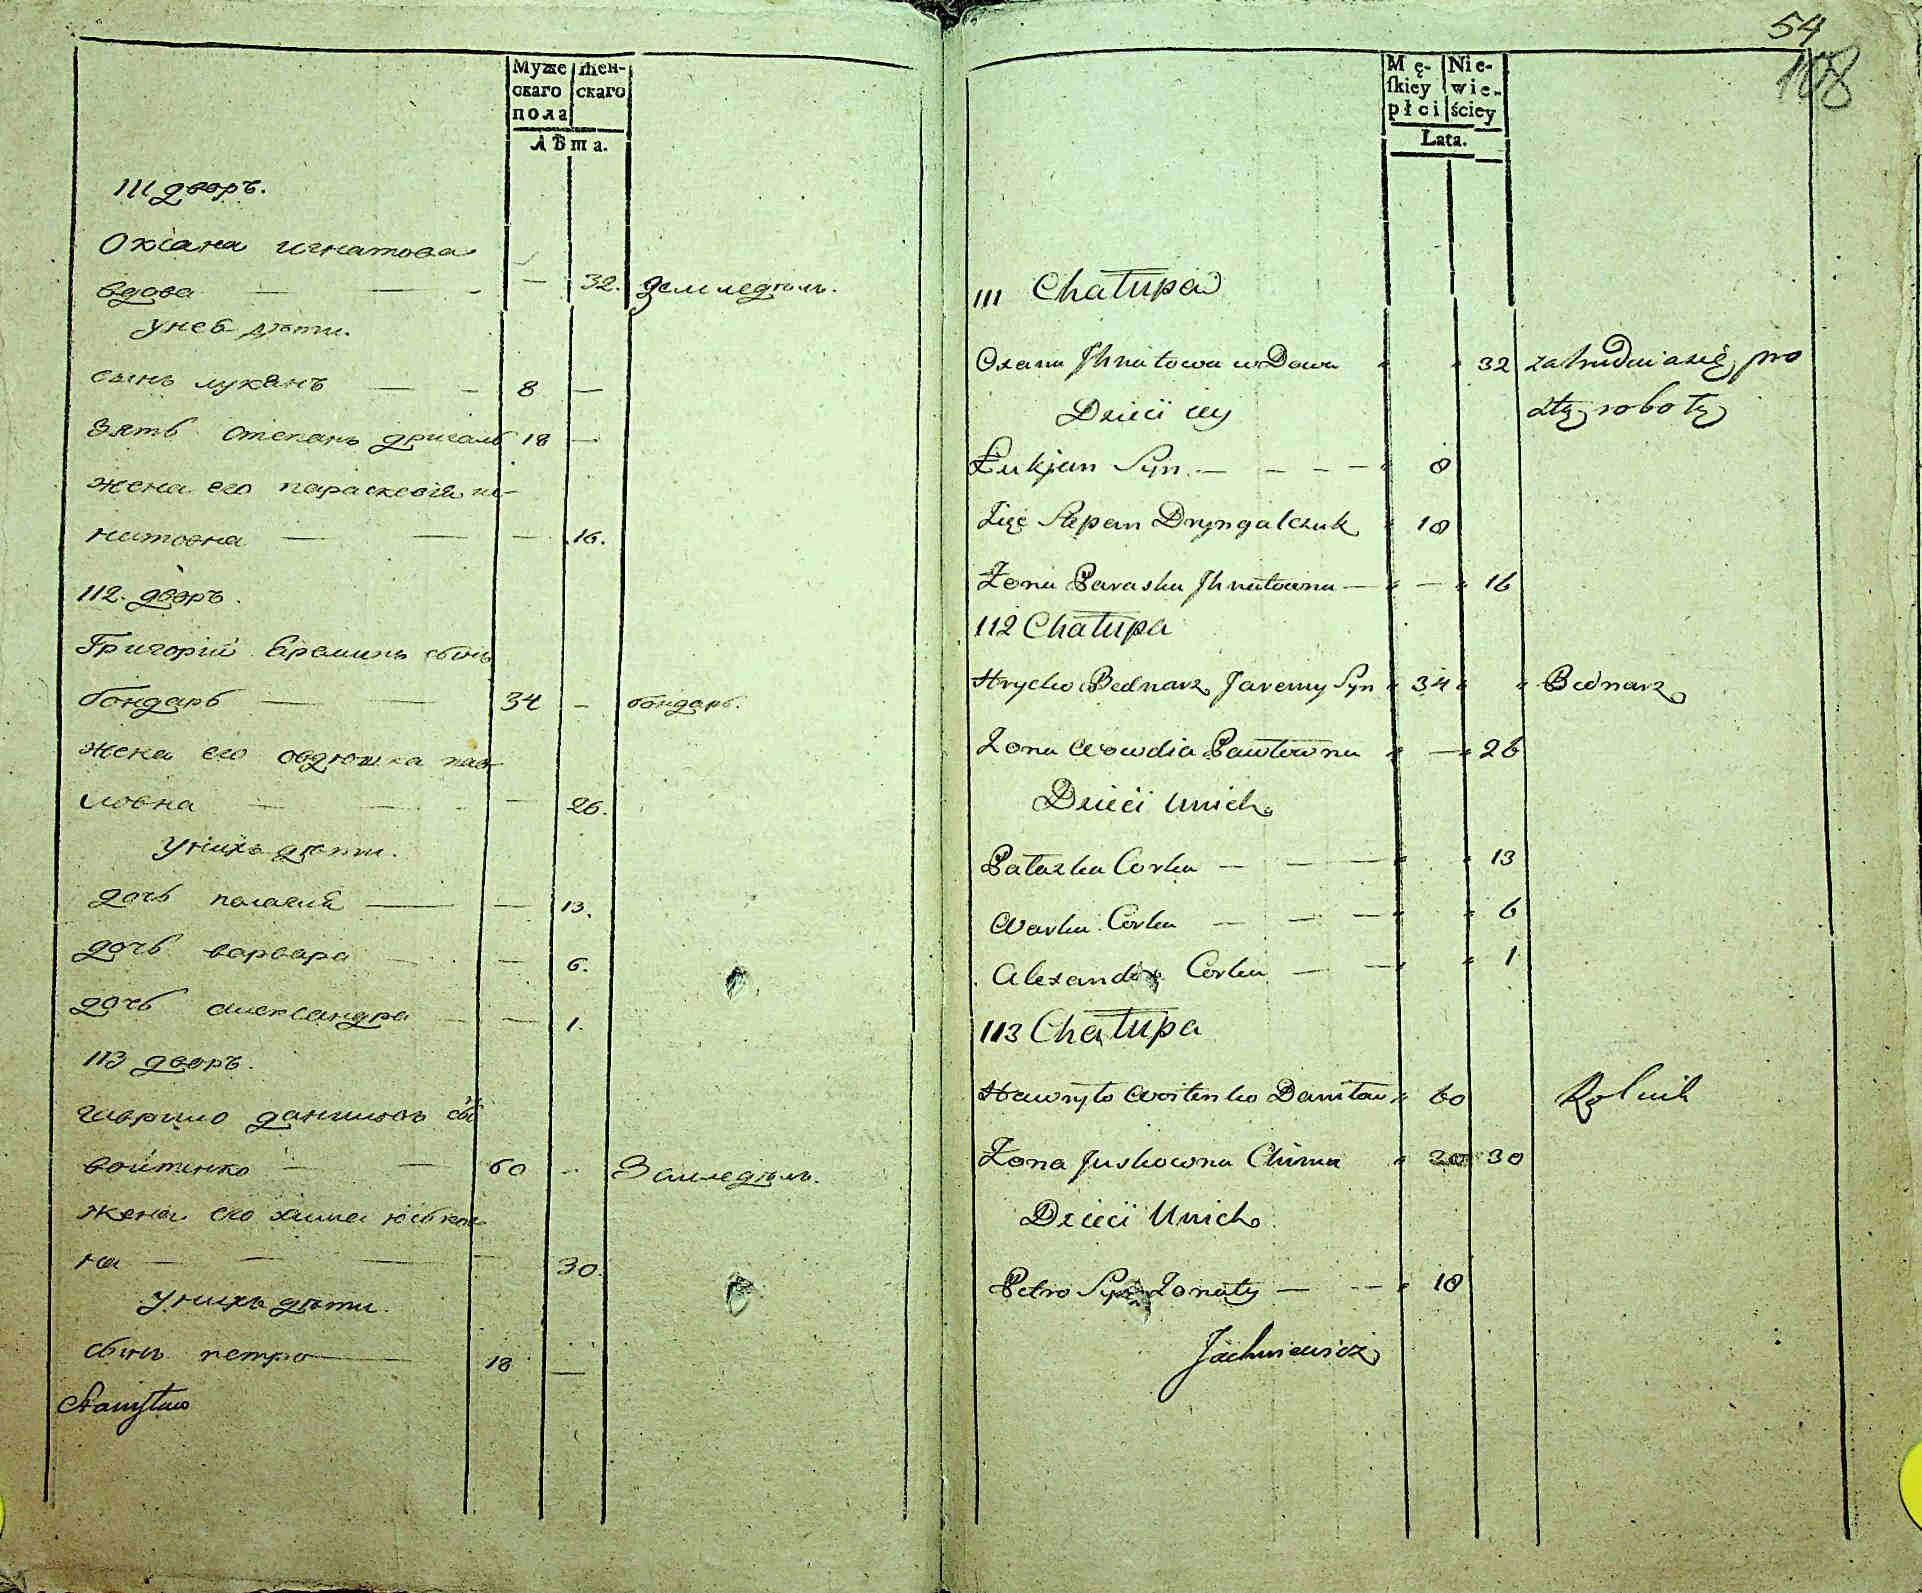 Муже
скаго
пола
Жен-
скаго
Лѣта.
111 дворъ.
Оксана игнатова
вдова — — - — 32. Землeдѣль.
у нее дѣти.
сынъ лукянъ — - 8 —
зять степанъ дригаль 18 —
жена его параскевiя иг-
натовна — — — 16.
112. дворъ.
Григорiй Яремин сынъ
бондарь — — 34 - бондарь.
жена его овдюшка пав-
ловна — — - — 26.
у нихъ дѣти.
дочь палагiя — — 13.
дочь варвара — — 6.
дочь александра — — 1.
113 дворъ.
гаврило даниловъ сы
войтенко — — 60 - Землeдѣль.
жена его химa юсков
на — — — — 30.
у нихъ дѣти.
сынъ петро — 18 —
Stanisław
54
108
Mę-
ſkiey
płci
Nie-
wie-
ściey
Lata.
111 Chałupa
Oxana Jhnatowa wDowa " " 32 zatrudnia się pro
stą robotą
Dzieci iey
Łukjan Syn — - - - " 8
Zięć Stepan Dryngalczuk " 18
Żona Paraska Jhnatowna — " — " 16
112 Chałupa
Hrycko Bednarz Jaremy Syn " 34 " " Bednarz
Zona Owdia Pawłowna " — " 26
Dzieci Unich
Pałazka Corka — — — " " 13
Warka Corka — — — " " 6
Alexandra Corka — — " " 1
113 Chałupa
Hawryło Woitenko Daniłow " 60 Rolnik
Żona Juskowna Chima " 30 30
Dzieci Unich
Petro Syn Zonaty — — " 18
Jachniewicz